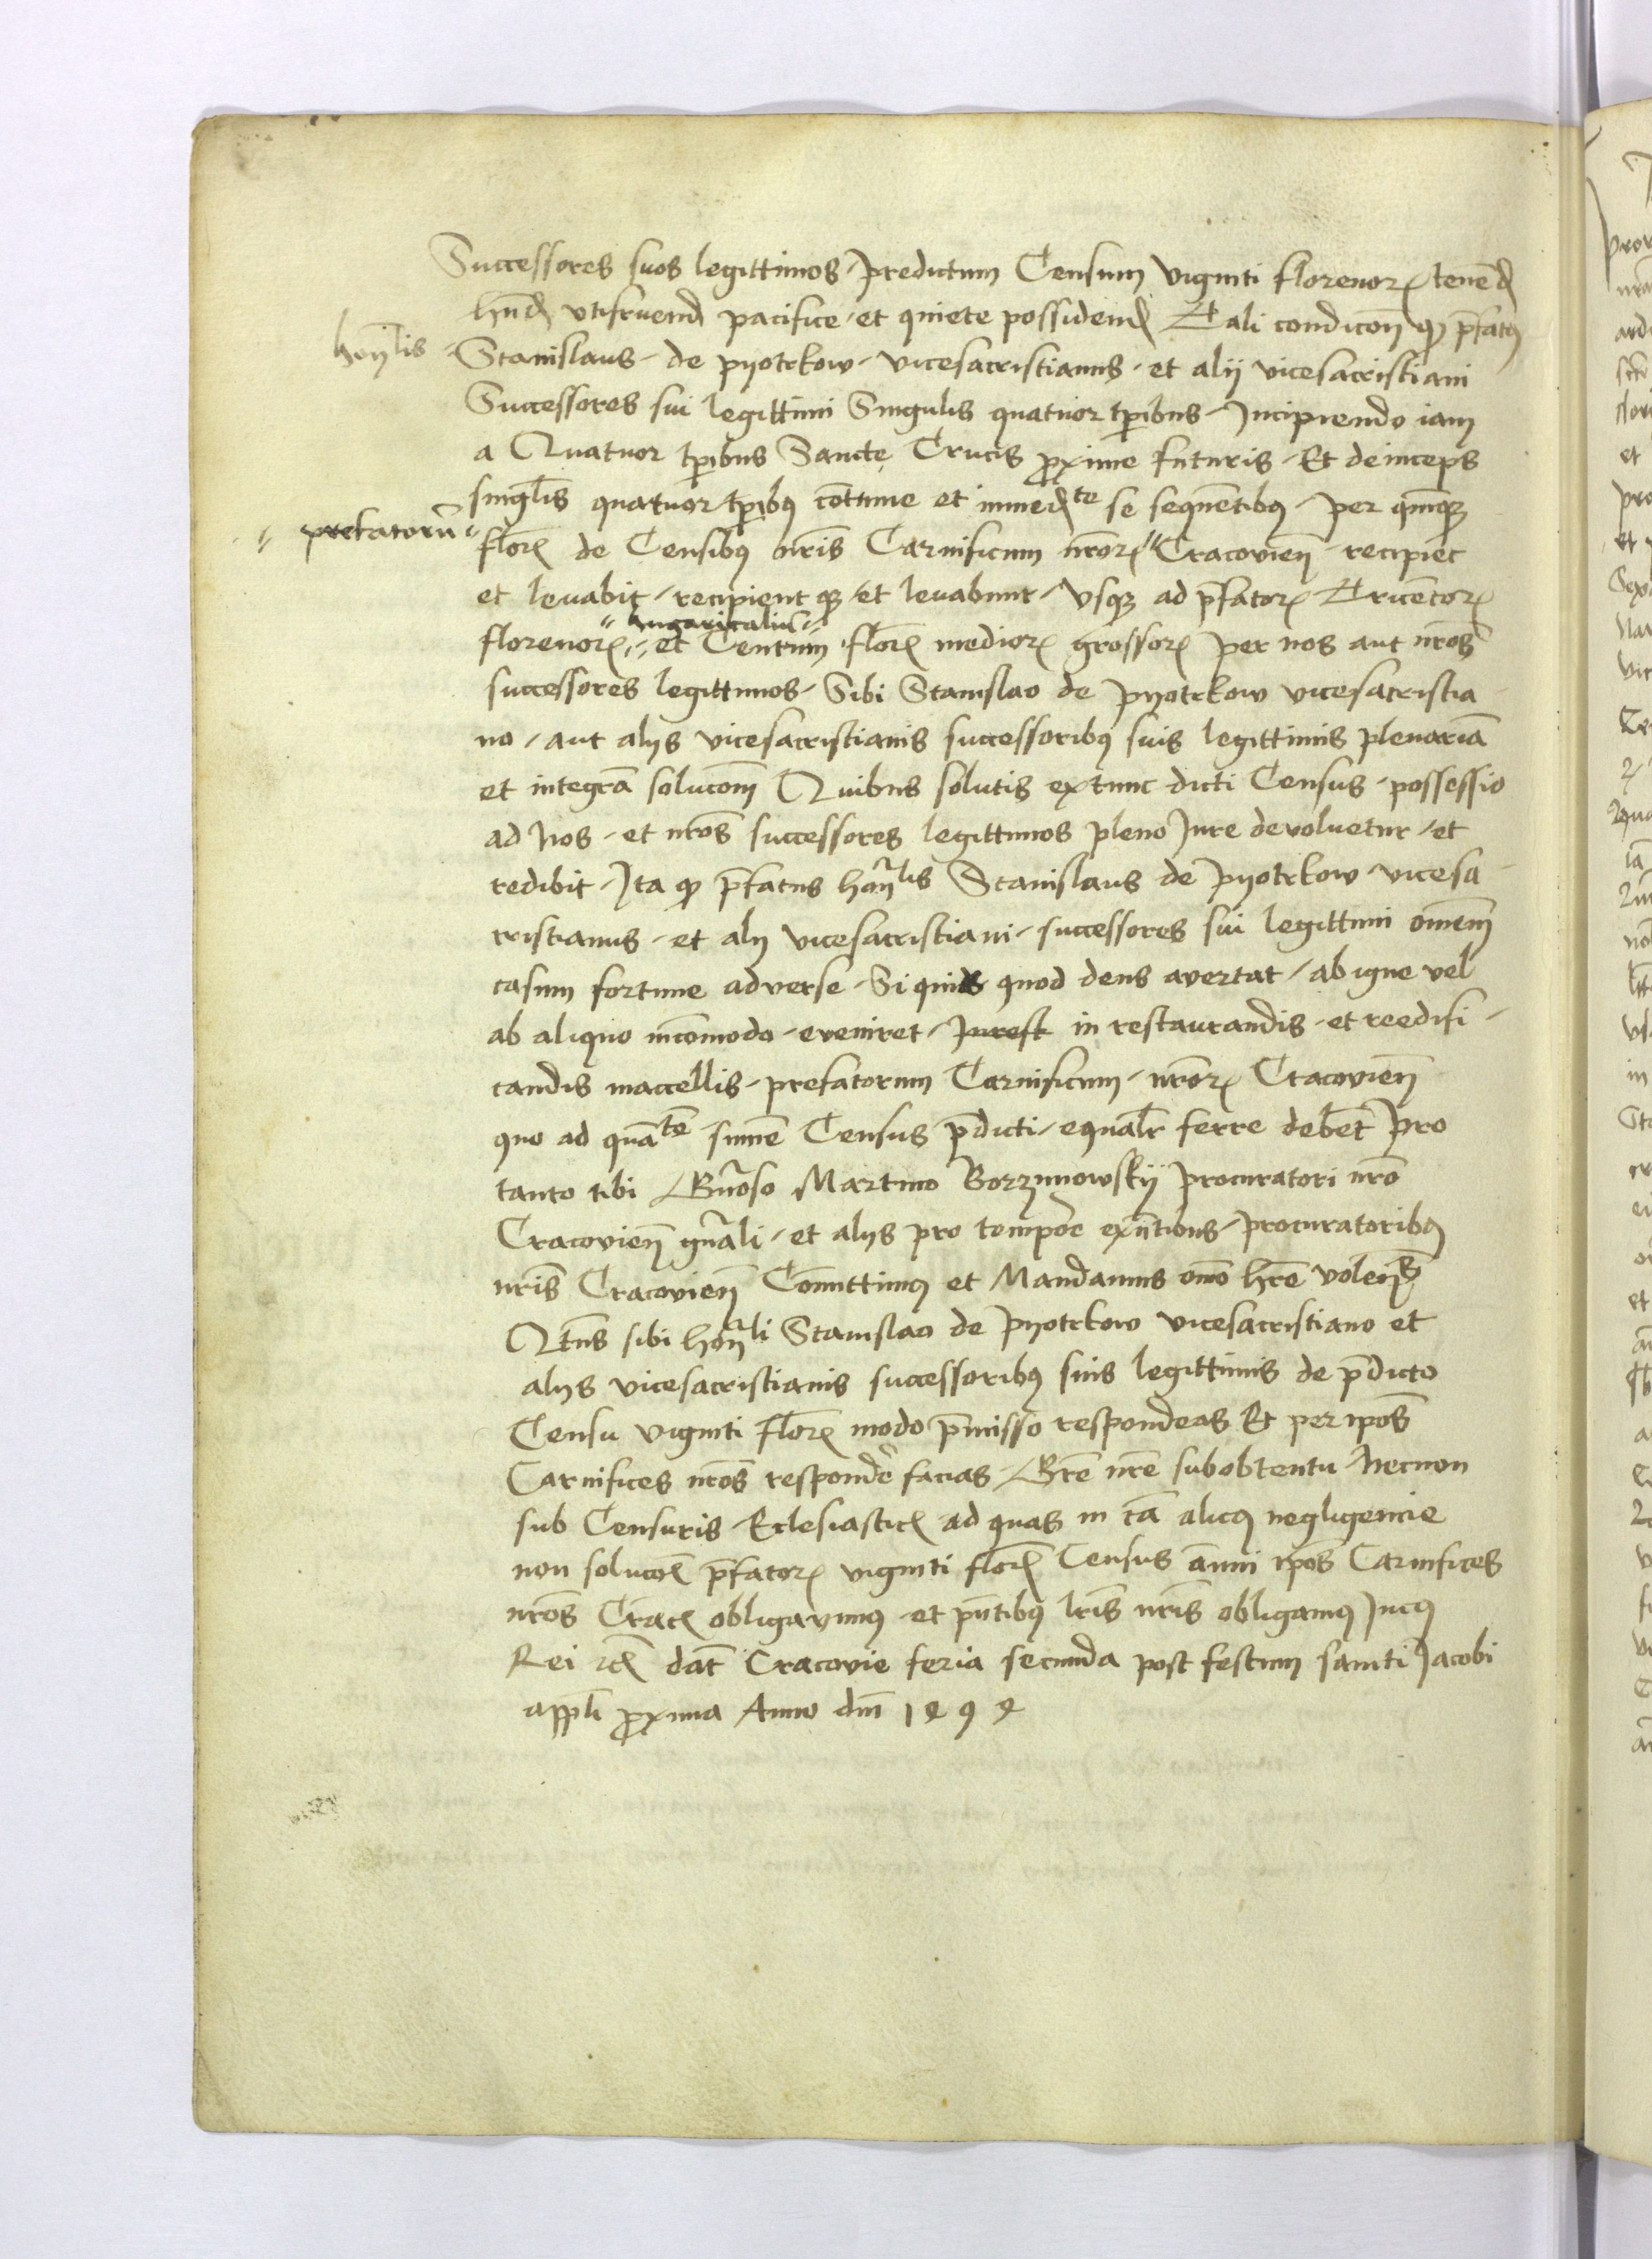 Successores suos legittimos predictum Censum viginti florenorꝝ tenēd
hn̄d vtifruend pacifice et quiete possidend Tali condicon̄ qꝫ p̄fatꝰ
hon̄lis Stanislaus de pyotrkow vicesacristianus et alij vicesacristiani
Successores sui legittimi Singulis quatuor tꝑibus Incipiendo iam
a Quatuor tꝑibus Sancte Crucis ꝓxime futuris Et deinceps
singl̄is quatuor tꝑibꝰ cōtinue et inmed^te se sequētibꝰ per quīqꝫ
prefatorū florꝝ de Censibꝰ nr̄is Carnificum nr̄orꝝ Cracovien̄ recipiet
et levabit recipient qꝫ et levabunt vsqꝫ ad p̄fatorꝝ Tricētorꝝ
hungaricaliū
florenorꝝ et Centum florꝝ mediorꝝ grossorꝝ per nos aut nr̄os
successores legittimos Sibi Stanislao de pyotrkow vicesacristia
no aut alijs vicesacristianis successoribꝰ suis legittimis plenariā
et integrā solucōm̄ Quibus solutis extunc dicti Census possessio
ad Nos et nr̄os successores legittimos pleno Jure devoluetur et
redibit Ita qꝫ p̄fatus hon̄lis Stanislaus de pyotrkow vicesa
cristianus et alij vicesacristiani successores sui legittimi om̄em̄
casum fortune adverse Si quis quod deus avertat ab igne vel
ab aliquo incōmodo eveniret in restaurandis et reedifi
candis maccellis prefatorum Carnificum nr̄orꝝ Cracovien̄
quo ad quā^te sum̄e Census p̄dicti equalr̄ ferre debēt pro
tanto tibi Gn̄oso Martino Borzymowskij procuratori nr̄o
Cracovien̄ gn̄ali et alijs pro tempor̄e exn̄tibus procuratoribꝰ
nr̄is Cracovien̄ Com̄ittimꝰ et Mandamus om̄o hr̄e volen̄s
Qtn̄s sibi hon̄li Stanislao de pyotrkow vicesacristiano et
alijs vicesacristianis successoribꝰ suis legittimis de p̄dicto
Censu viginti florꝝ modo p̄misso respondeas Et per ipos̄
Carnifices nr̄os respondēr facias Grē nrē sub obtentu Necnon
sub Censuris Ecclesiasticꝭ ad quas in cā alicꝰ negligencie
non solucōꝭ p̄fatorꝝ viginti florꝝ Census annui ipos̄ Carnifices
nr̄os Cracꝭ obligavimꝰ et pn̄tibꝰ lr̄is nr̄is obligamꝰ Incꝰ
Rei ⁊cꝭ dat̄ Cracovie feria secunda post festum sancti Jacobi
appl̄i ꝓxima Anno dm̄ 1494